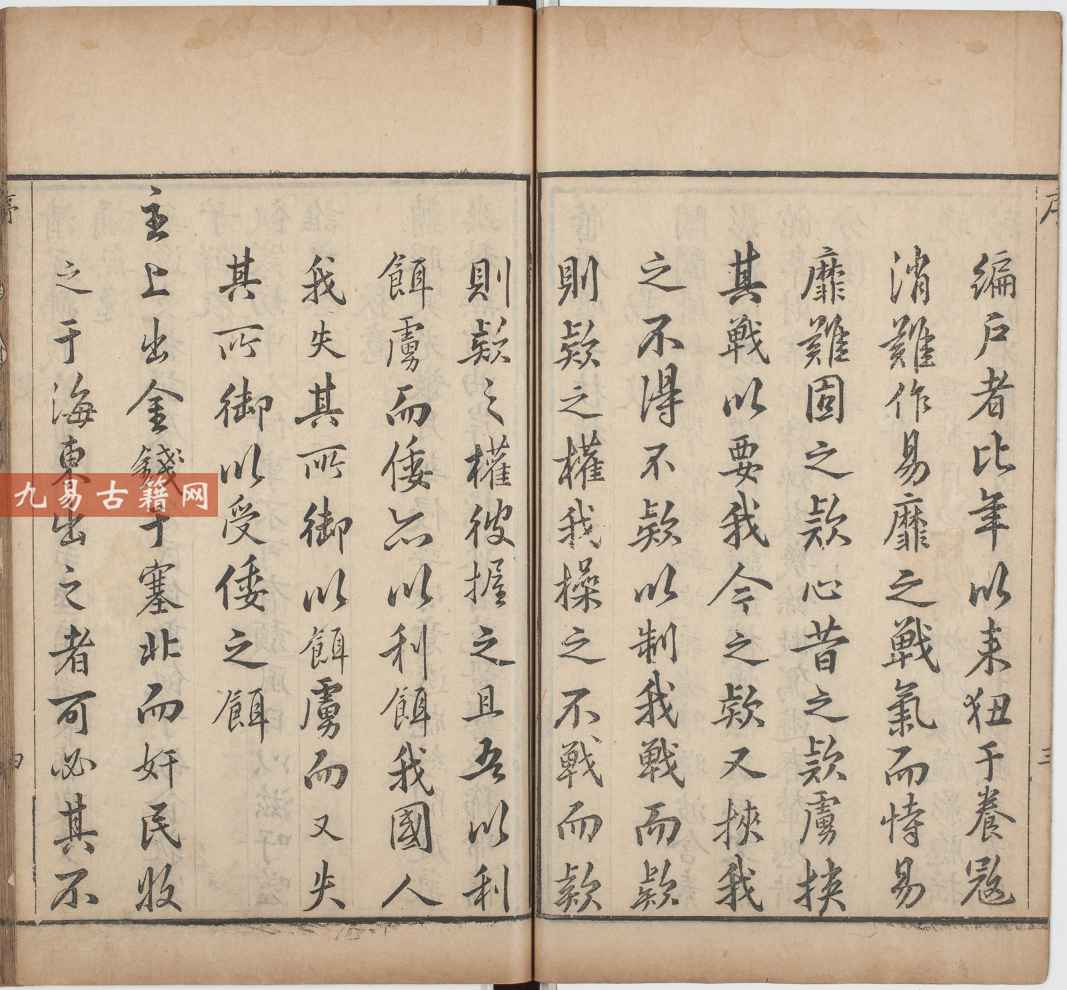 序
三
編户者比年以来狃于養冦
消難作易靡之戰氣而恃易
靡難固之欵心昔之欵虜挟
其戰以要我今之欵又挾我
之不得不欵以制我戰而欵
則欵之權我操之不戰而欵
則欵之權彼握之且吾以利
餌虜而倭亦以利餌我國人
我失其所御以餌虜而又失
其所御以受倭之餌
主上出金錢于塞北而奸民收
之于海東出之者可必其不
九易古籍网